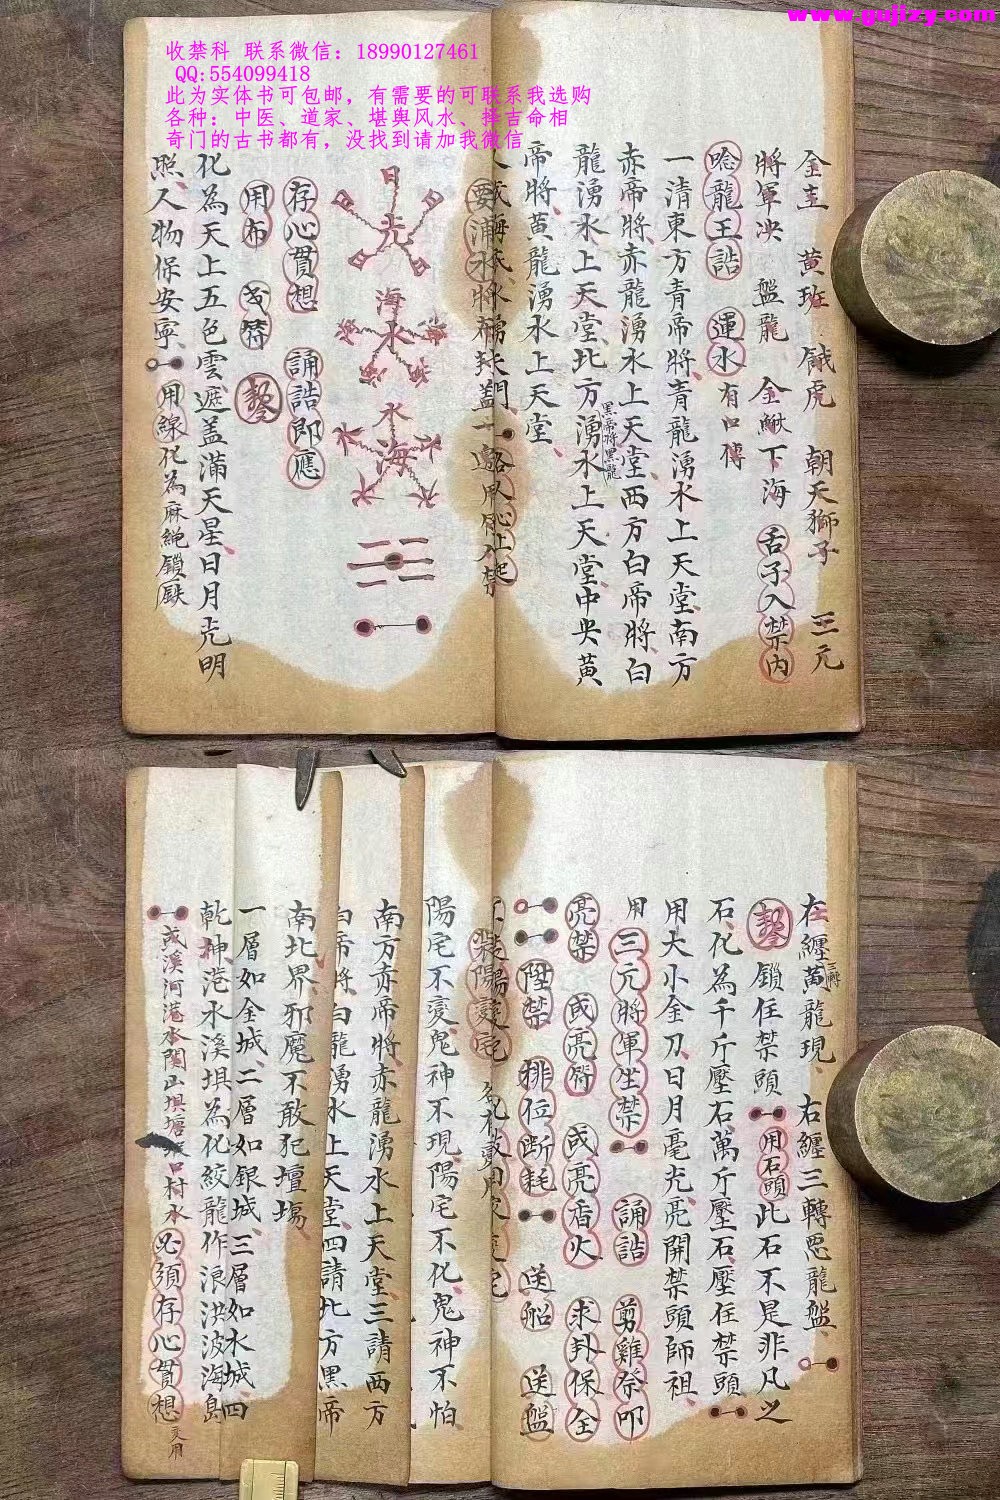 www.gojizy.com
收禁科 联系微信：18990127461
QQ:554099418
此为实体书可包邮，有需要的可联系我选购
各种：中医、道家、堪舆风水、择吉命相
奇门的古书都有，没找到请加我微信
金圭 黄班 餓虎 朝天獅子 三元
將軍決 盤龍 金鰍下海 舌子入禁內
唸龍王誥 運水 有口傳
一清東方青帝將青龍湧水上天堂南方
赤帝將赤龍湧水上天堂西方白帝將白
龍湧水上天堂北方湧水上天堂中央黄
黑帝將黑龍
帝將黄龍湧水上天堂
日光
海水
水海
存心貫想 誦誥即應
用布
化為天上五色雲遮盖滿天星日月光明
照人物保安寧 用線化為麻繩鎖
在纏黄龍現右纏三轉惡龍盤
鎖住禁頭 用石頭 此石不是非凡之
石化為千斤壓石萬斤壓石壓住禁頭
用大小金刀日月毫光亮開禁頭師祖
用三元將軍坐禁 誦誥 剪雞祭叩
亮禁 或亮符 或亮香火 求卦保全
陞禁 排位斷耗 送船 送盤
陽宅不變鬼神不現陽宅不化鬼神不怕
南方赤帝將赤龍湧水上天堂三請西方
白帝將白龍湧水上天堂四請北方黑帝
南北界邪魔不敢犯壇場
一層如金城二層如銀城三層如水城四
乾坤港水溪埧為化絞龍作浪洪波海島
或溪河港水閘山埧塘 口村水必須存心貫想